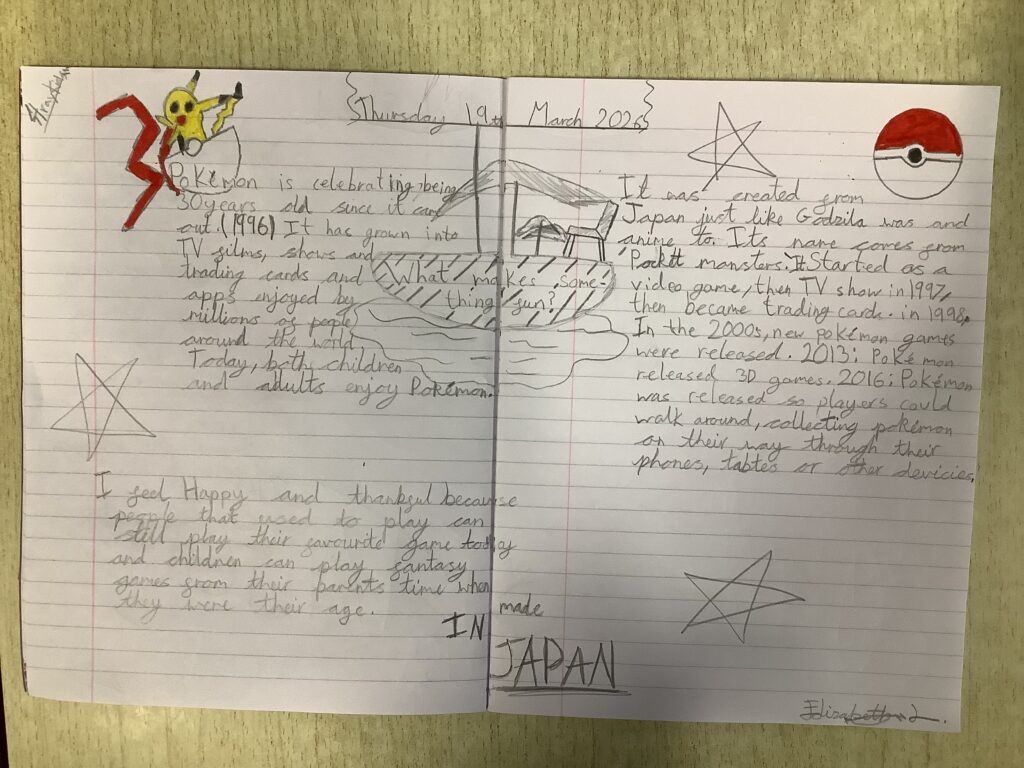 Thursday 19th March 2026
Pokémon is celebrating being
30 years old since it came
out. (1996) It has grown into
TV films, shows and
trading cards and
apps enjoyed by
millions of people
around the world
Today, both children
and adults enjoy Pokémon.
I feel Happy and thankful because
people that used to play can
still play their favourite game today
and children can play fantasy
games from their parents time when
they were their age.
What makes some-
thing fun?
It was created from
Japan just like Godzila was and
anime to. Its name comes from
Pockett monsters. It Started as a
video game, then TV show in 1997,
then became trading cards. in 1998.
In the 2000s, new pokémon games
were released. 2013: Pokémon
released 3D games. 2016: Pokémon
was released so players could
walk around, collecting pokémon
on their way through their
phones, tabtes or other devicies.
made
IN
JAPAN